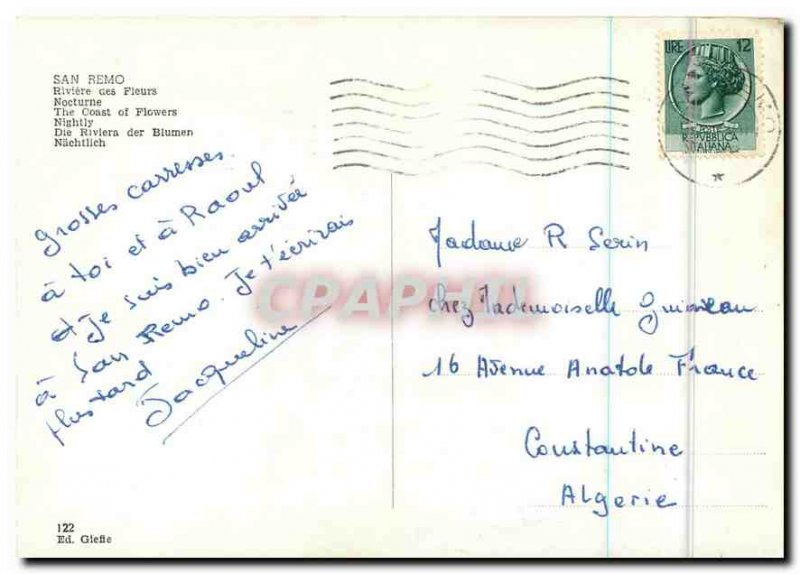 SAN REMO
Rivière des Fleurs
Nocturne
The Coast of Flowers
Nightly
Die Riviera der Blumen
Nächtlich
LIRE 12
POSTE
REPVBBLICA
ITALIANA
grosses carresses
à toi et à Raoul
et je suis bien arrivée
à San Remo. Je t'écrirais
plus tard
Jacqueline
Madame R Serin
chez Mademoiselle
16 Avenue Anatole France
Constantine
Algerie
CPAPHIL
122
Ed. Giefie